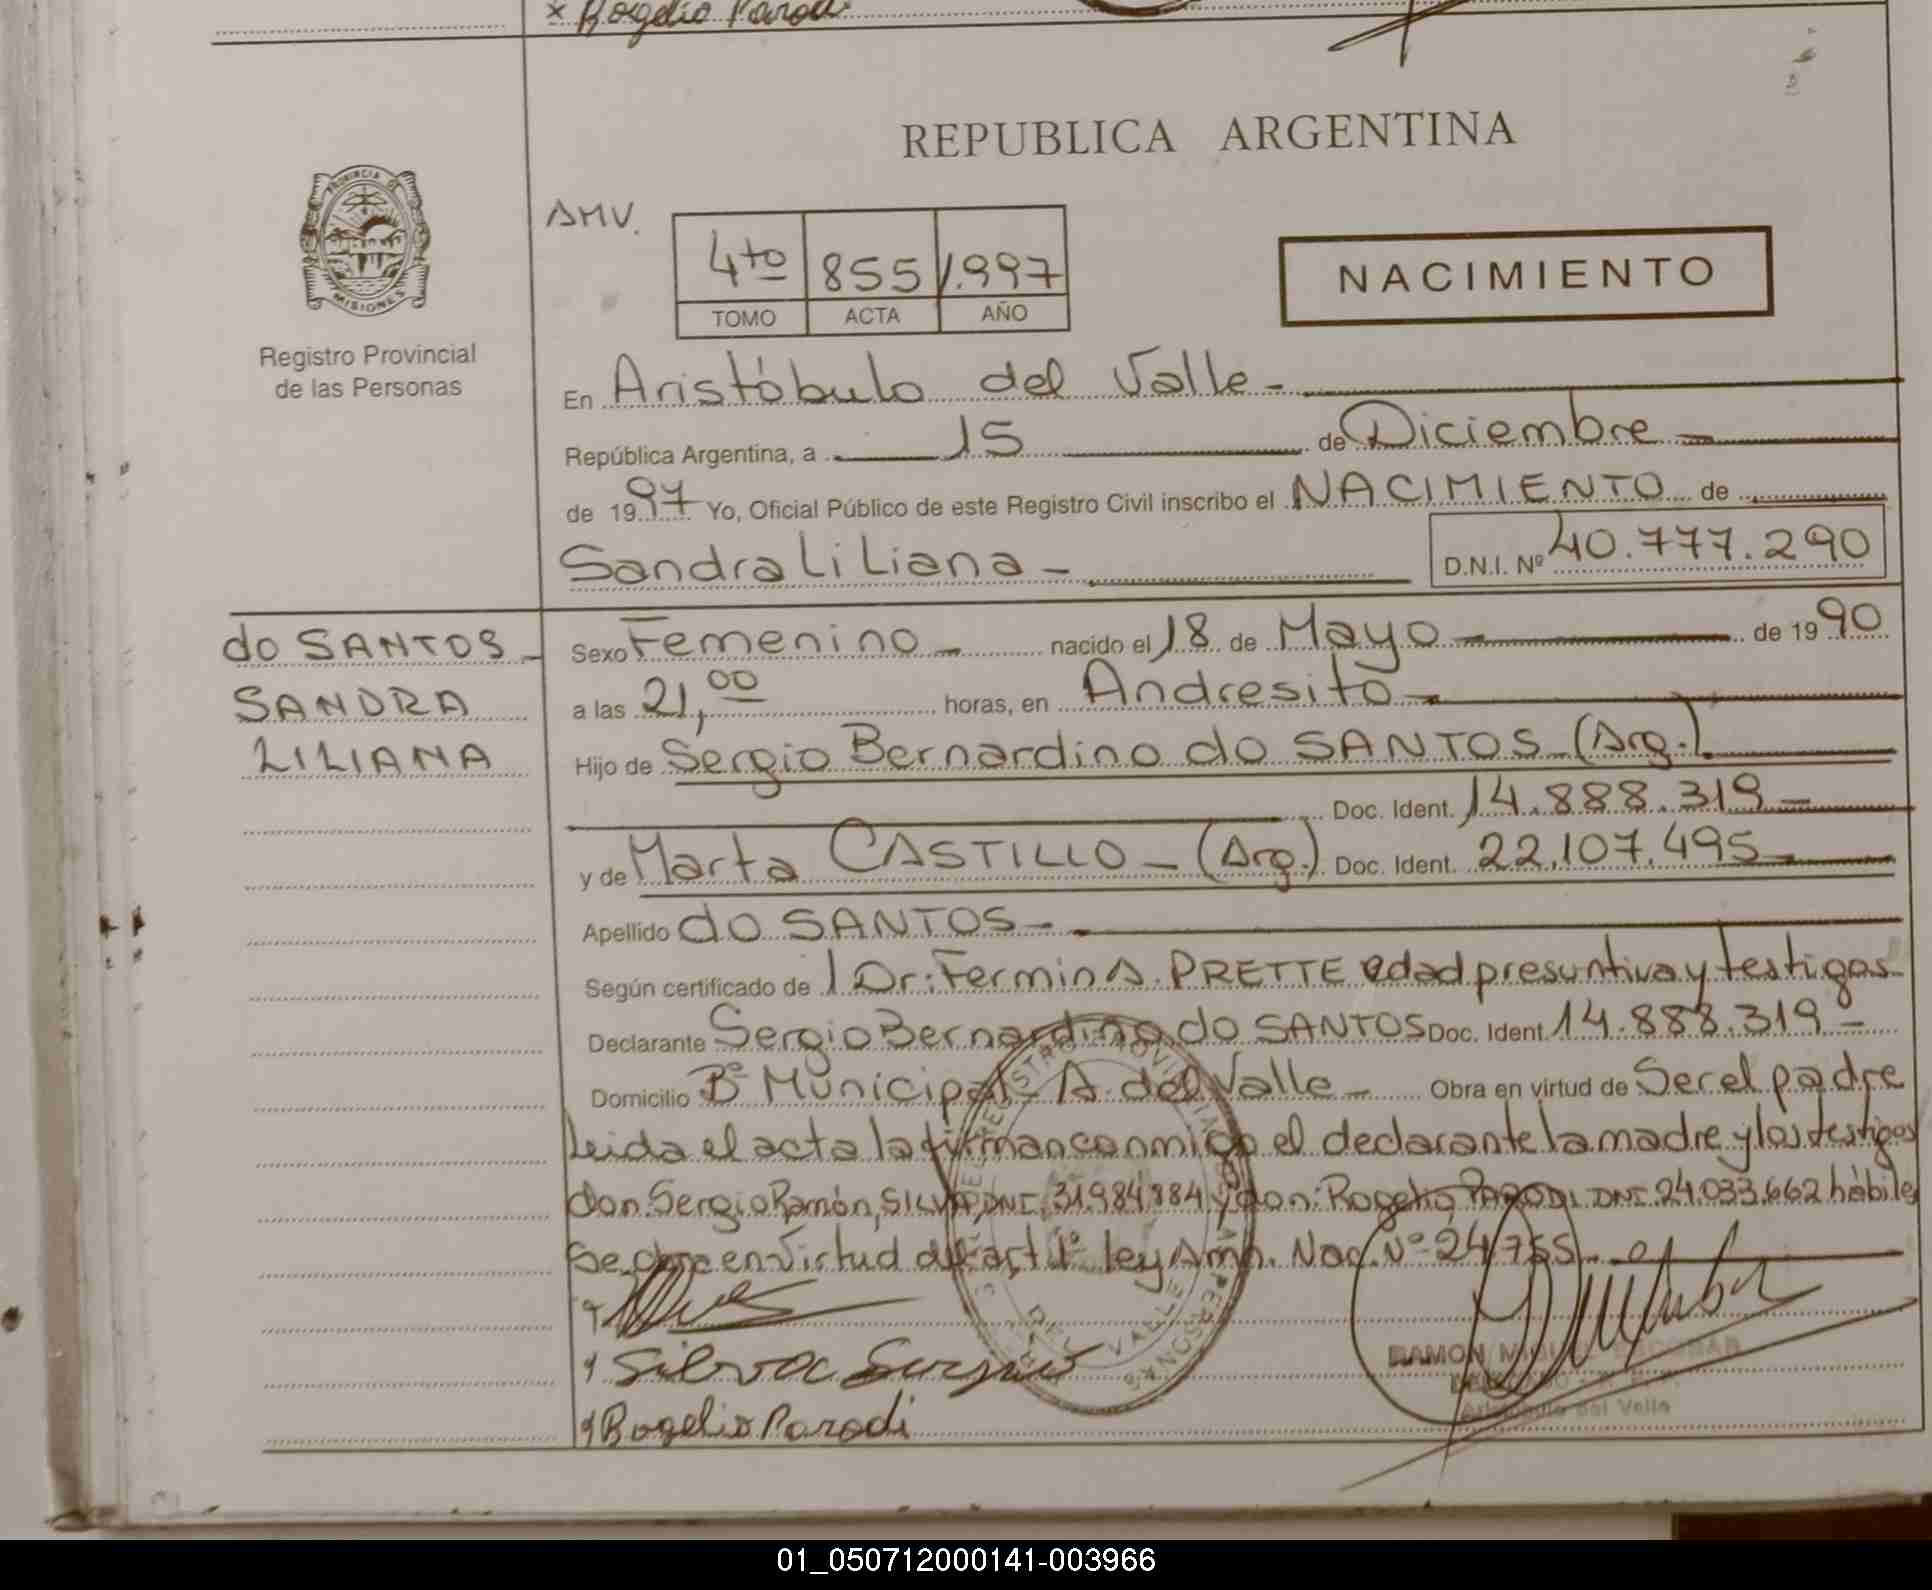 x Rogelio Parodi
REPUBLICA ARGENTINA
PROVINCIA DE
MISIONES
Registro Provincial
de las Personas
AMV.
4to 855 1.997
TOMO ACTA AÑO
NACIMIENTO
En Aristóbulo del Valle -
República Argentina, a 15 de Diciembre -
de 1997 Yo, Oficial Público de este Registro Civil inscribo el NACIMIENTO de
Sandra Liliana - D.N.I. Nº 40.777.290
do SANTOS -
SANDRA
LILIANA
Sexo Femenino - nacido el 18 de Mayo - de 1990
a las 21,00 horas, en Andresito -
Hijo de Sergio Bernardino do SANTOS - (Arg.)
Doc. Ident. 14.888.319 -
y de Marta CASTILLO - (Arg.) Doc. Ident. 22.107.495 -
Apellido do SANTOS -
Según certificado de 1 Dr: Fermin A. PRETTE edad presuntiva y testigos
Declarante Sergio Bernardino do SANTOS Doc. Ident. 14.888.319 -
Domicilio Bº Municipal - A. del Valle - Obra en virtud de Ser el padre
Leida el acta la firman conmigo el declarante la madre y los testigos
don: Sergio Ramón, SILVA, DNI. 31.984.884 y don: Rogelio PARODI DNI. 24.033.662 hábiles
Se obra en Virtud del art 1º ley Amn. Nac. Nº 24.755 -
Silva Sergio
Rogelio Parodi
DEL VALLE
RAMON MIGUEL ESCOBAR
Aristóbulo del Valle
01_050712000141-003966